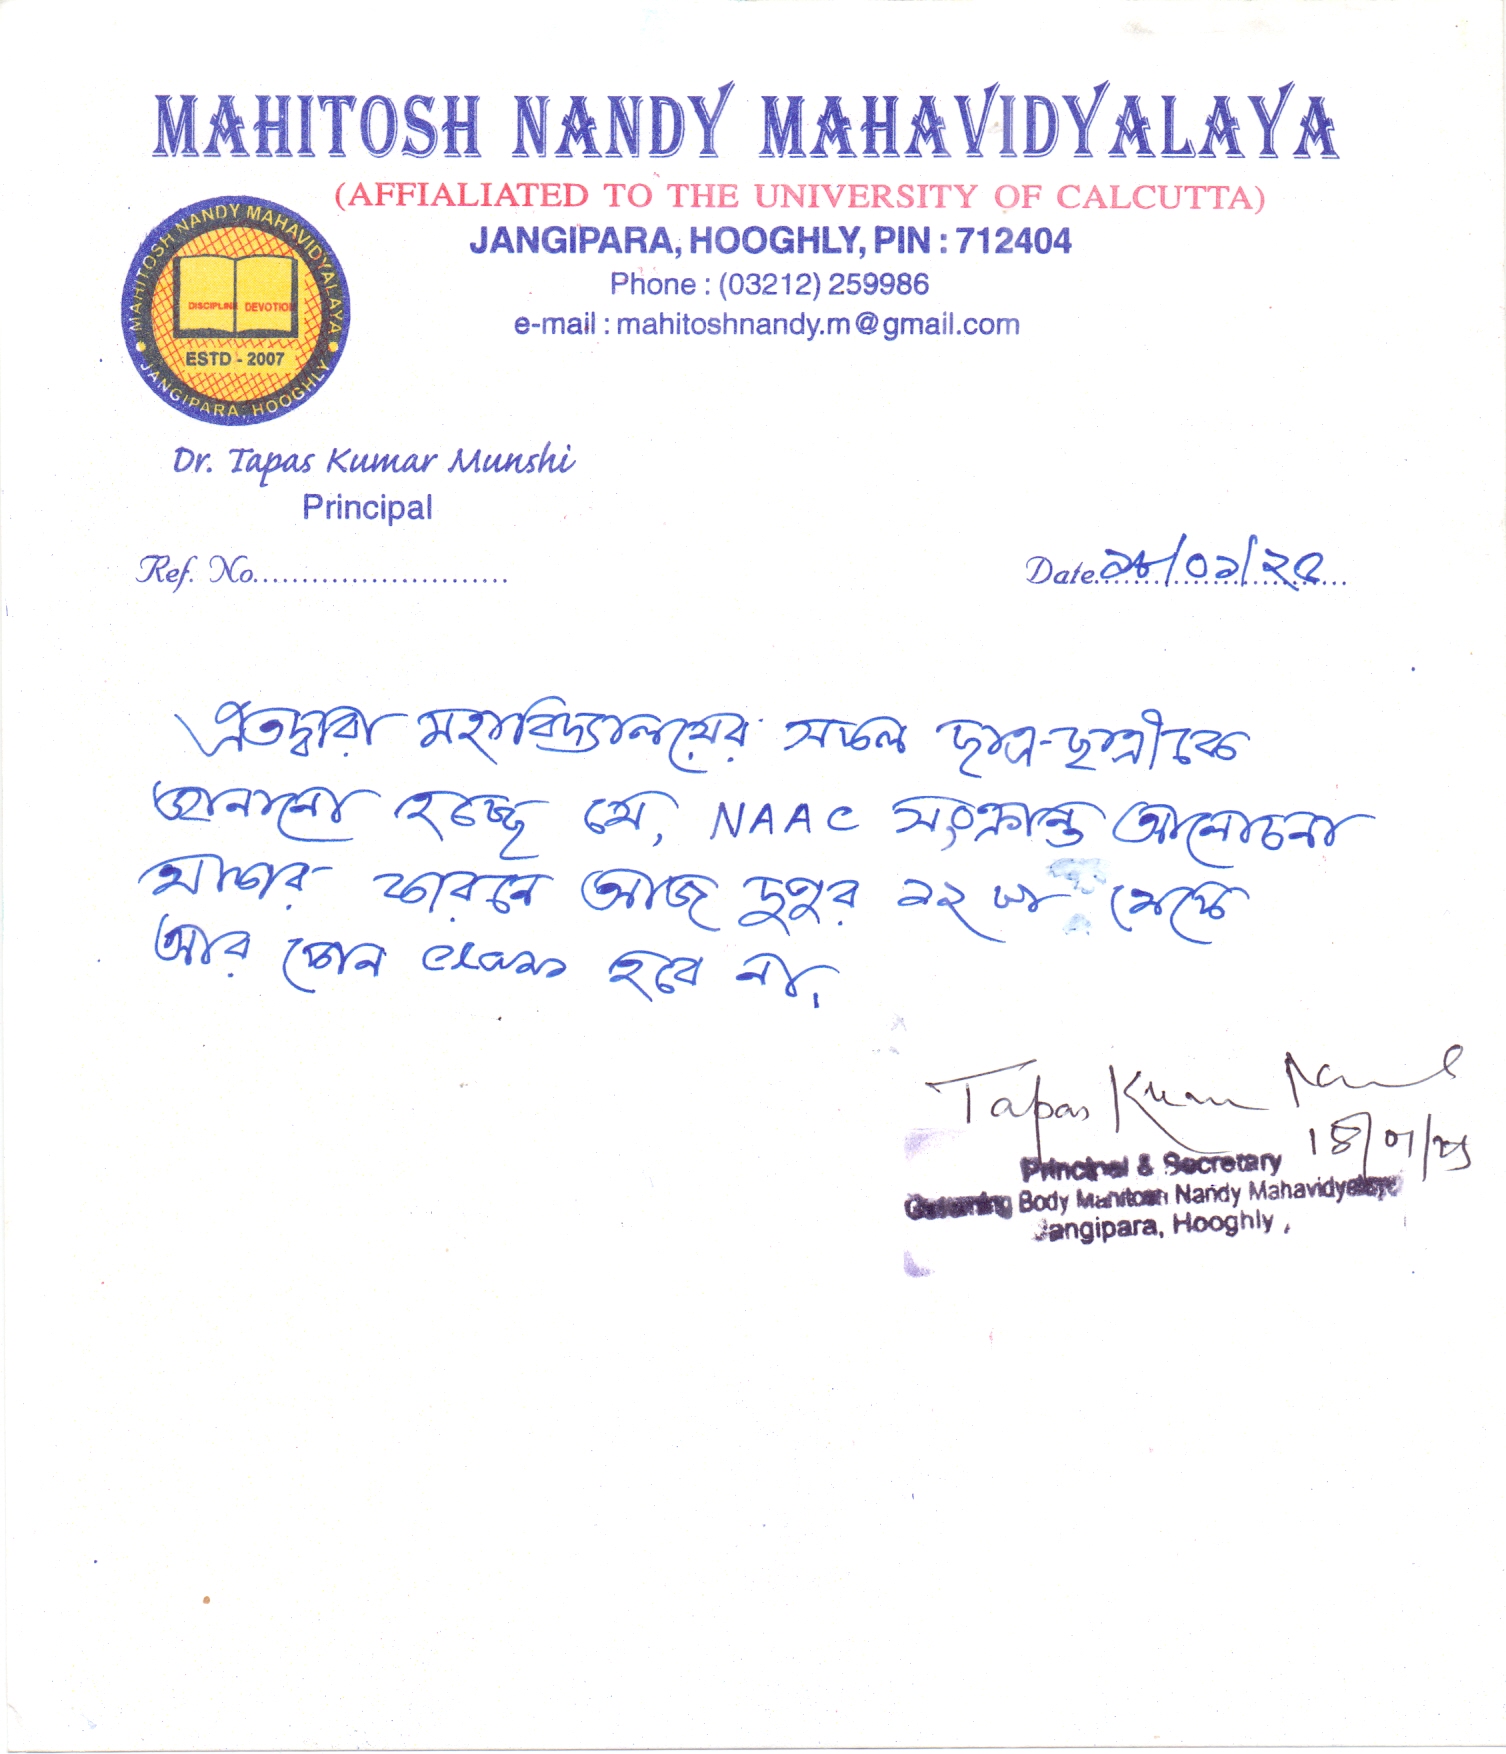 MAHITOSH NANDY MAHAVIDYALAYA
(AFFIALIATED TO THE UNIVERSITY OF CALCUTTA)
JANGIPARA, HOOGHLY, PIN : 712404
Phone : (03212) 259986
e-mail : mahitoshnandy.m@gmail.com
MAHITOSH NANDY MAHAVIDYALAYA
DISCIPLINE DEVOTION
ESTD - 2007
JANGIPARA, HOOGHLY
Dr. Tapas Kumar Munshi
Principal
Ref. No.........................
Date ১৮/০১/২৫
এতদ্বারা মহাবিদ্যালয়ের সকল ছাত্র-ছাত্রীকে
জানানো হচ্ছে যে, NAAC সংক্রান্ত আলোচনা
থাকার কারনে আজ দুপুর ১২ টা থেকে
আর কোন class হবে না।
Tapas Kumar
18/01/25
Principal & Secretary
Governing Body Mahitosh Nandy Mahavidyalaya
Jangipara, Hooghly